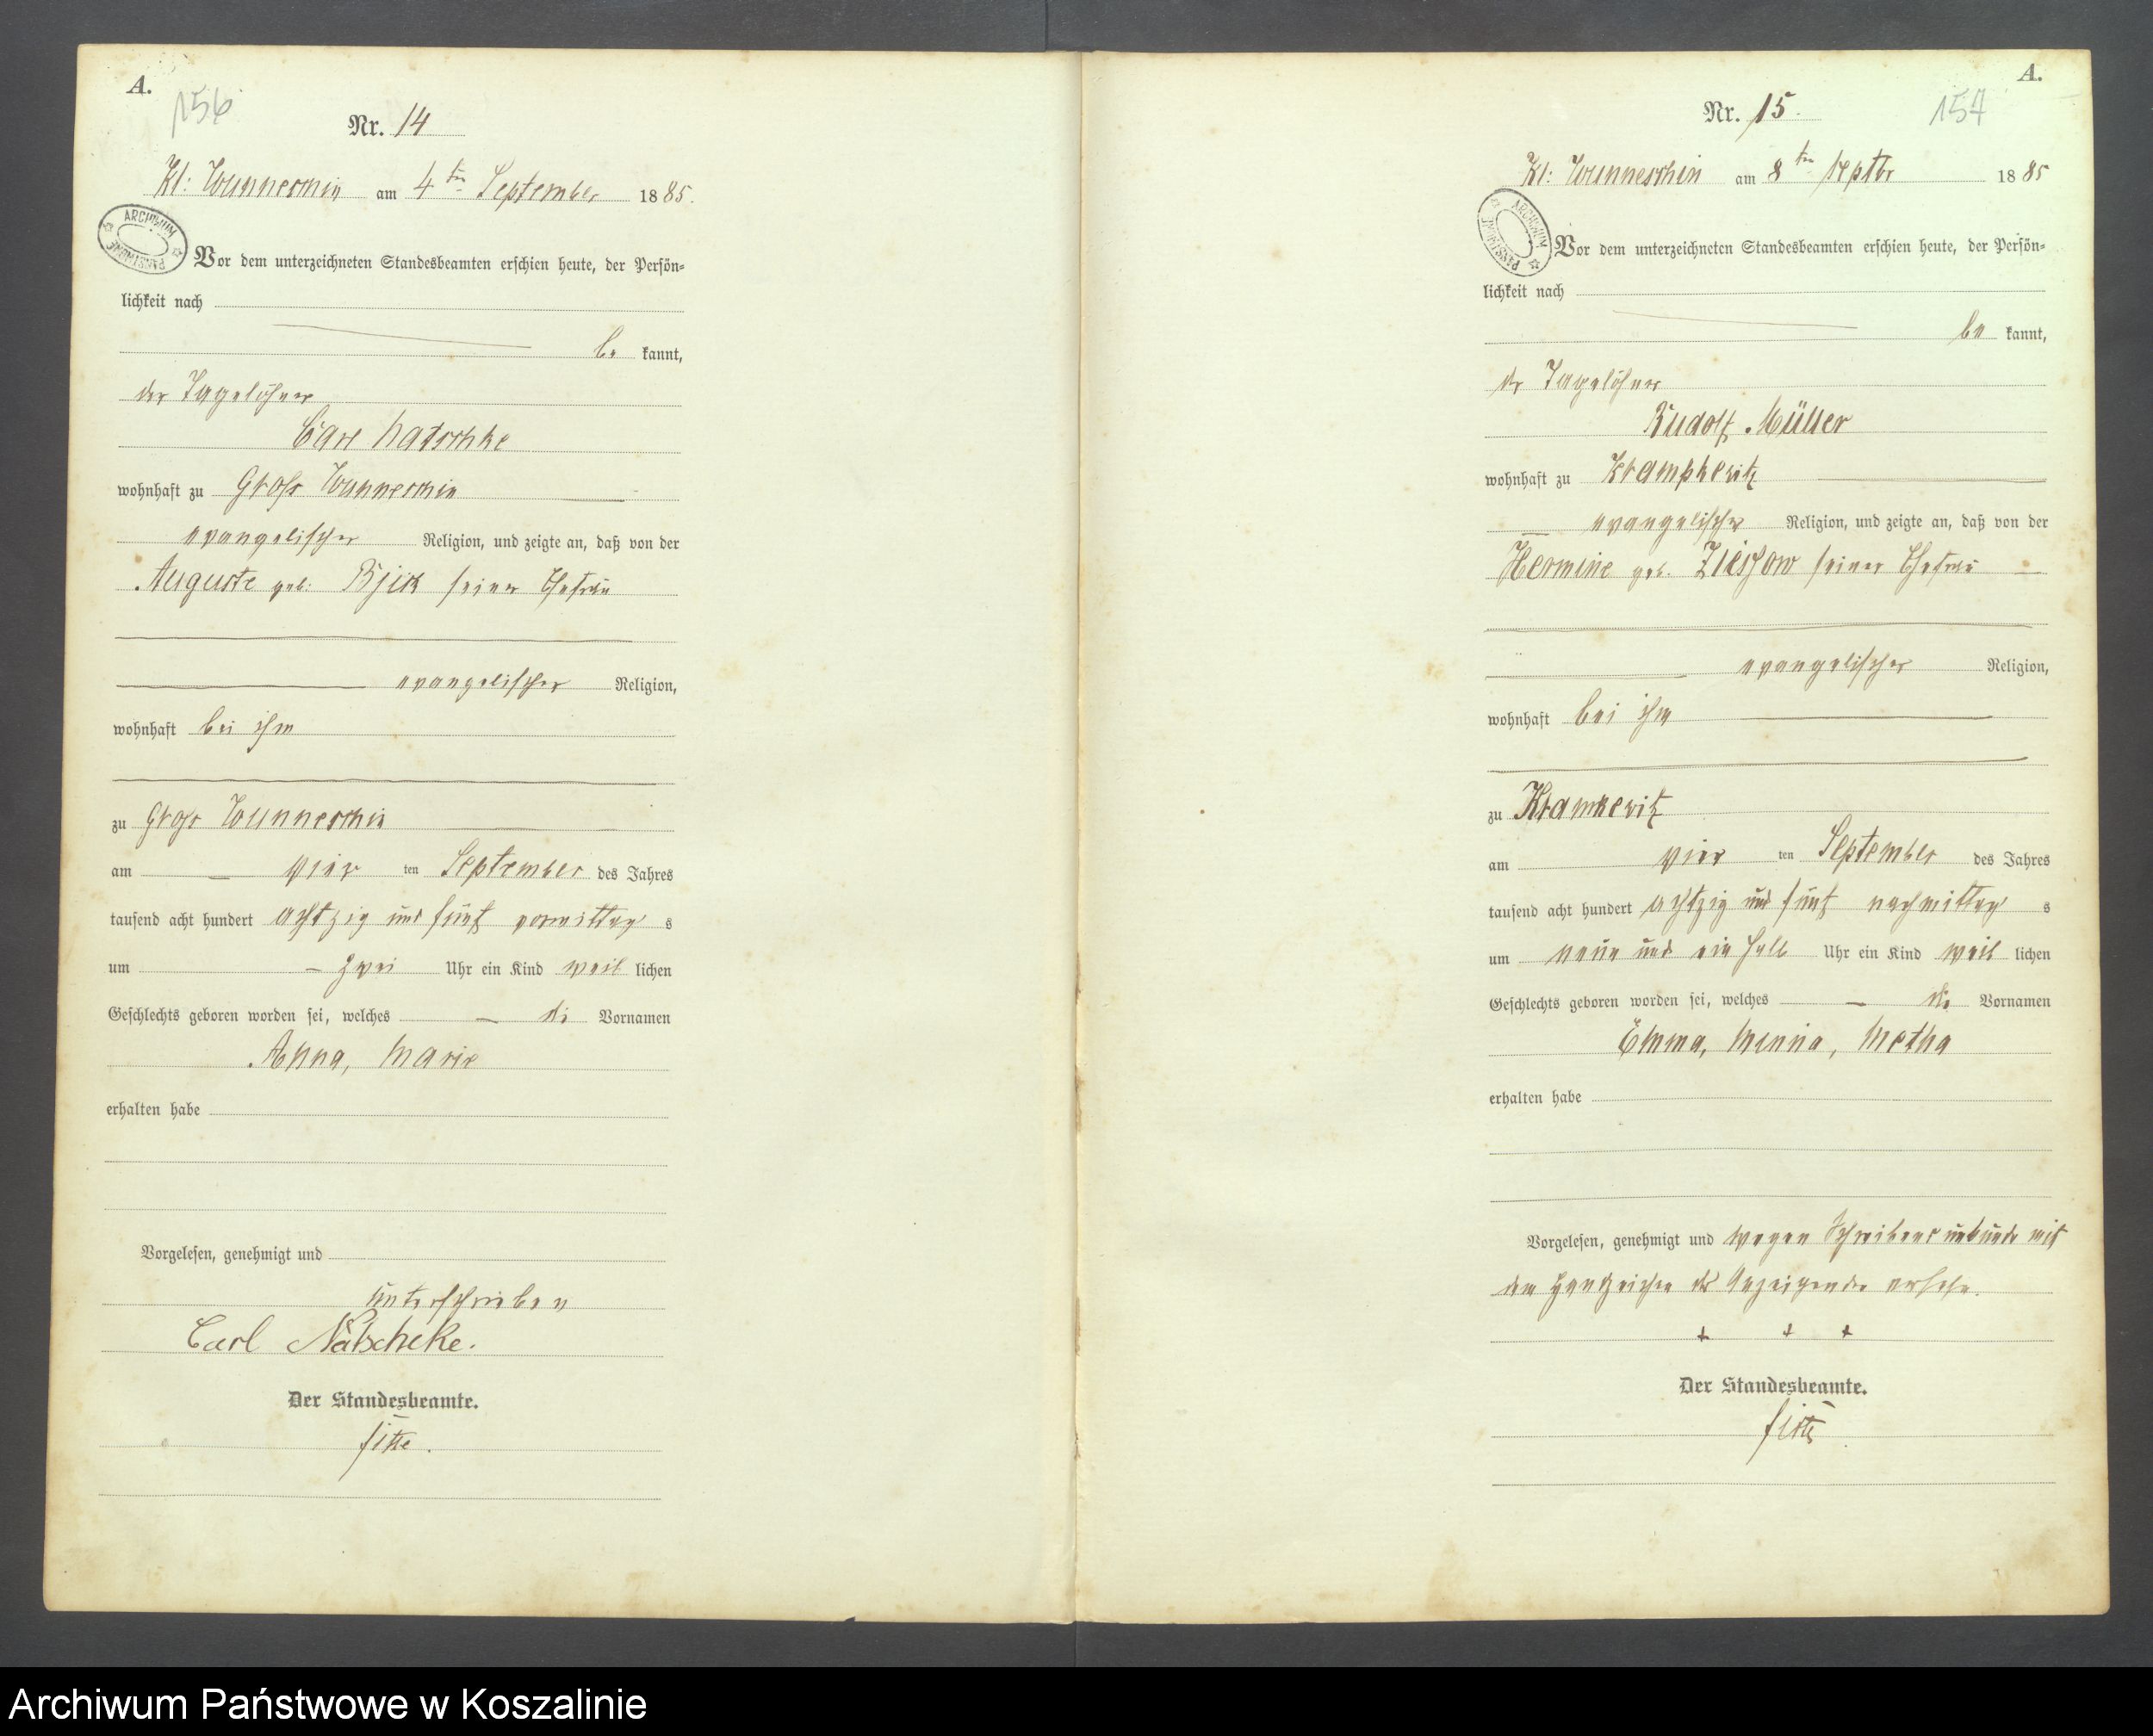 A.
156
Nr. 14
Kl: Wunneschin am 4ten September 1885.
ARCHIWUM PAŃSTWOWE
Vor dem unterzeichneten Standesbeamten erschien heute, der Persön-
lichkeit nach
be kannt,
der Tagelöhner
Carl Natschke
wohnhaft zu Groß Wunneschin
evangelischer Religion, und zeigte an, daß von der
Auguste geb: seiner Ehefrau
evangelischer Religion,
wohnhaft bei ihm
zu Groß Wunneschin
am vier ten September des Jahres
tausend acht hundert achtzig und fünf vormittag s
um zwei Uhr ein Kind weib lichen
Geschlechts geboren worden sei, welches die Vornamen
Anna, Marie
erhalten habe
Vorgelesen, genehmigt und
unterschrieben
Carl Natscheke.
Der Standesbeamte.
A.
157
Nr. 15.
Kl: Wunneschin am 8ten Septbr 1885
ARCHIWUM PAŃSTWOWE
Vor dem unterzeichneten Standesbeamten erschien heute, der Persön-
lichkeit nach
be kannt,
der Tagelöhner
Rudolf Müller
wohnhaft zu Krampkewitz
evangelischer Religion, und zeigte an, daß von der
Hermine geb. seiner Ehefrau
evangelischer Religion,
wohnhaft bei ihm
zu Kramkewitz
am vier ten September des Jahres
tausend acht hundert achtzig und fünf nachmittag s
um neun und ein halb Uhr ein Kind weib lichen
Geschlechts geboren worden sei, welches die Vornamen
Emma, Minna, Metha
erhalten habe
Vorgelesen, genehmigt und wegen Schreibens unkunde mit
dem Handzeichen des Anzeigenden versehn.
+ + +
Der Standesbeamte.
Archiwum Państwowe w Koszalinie